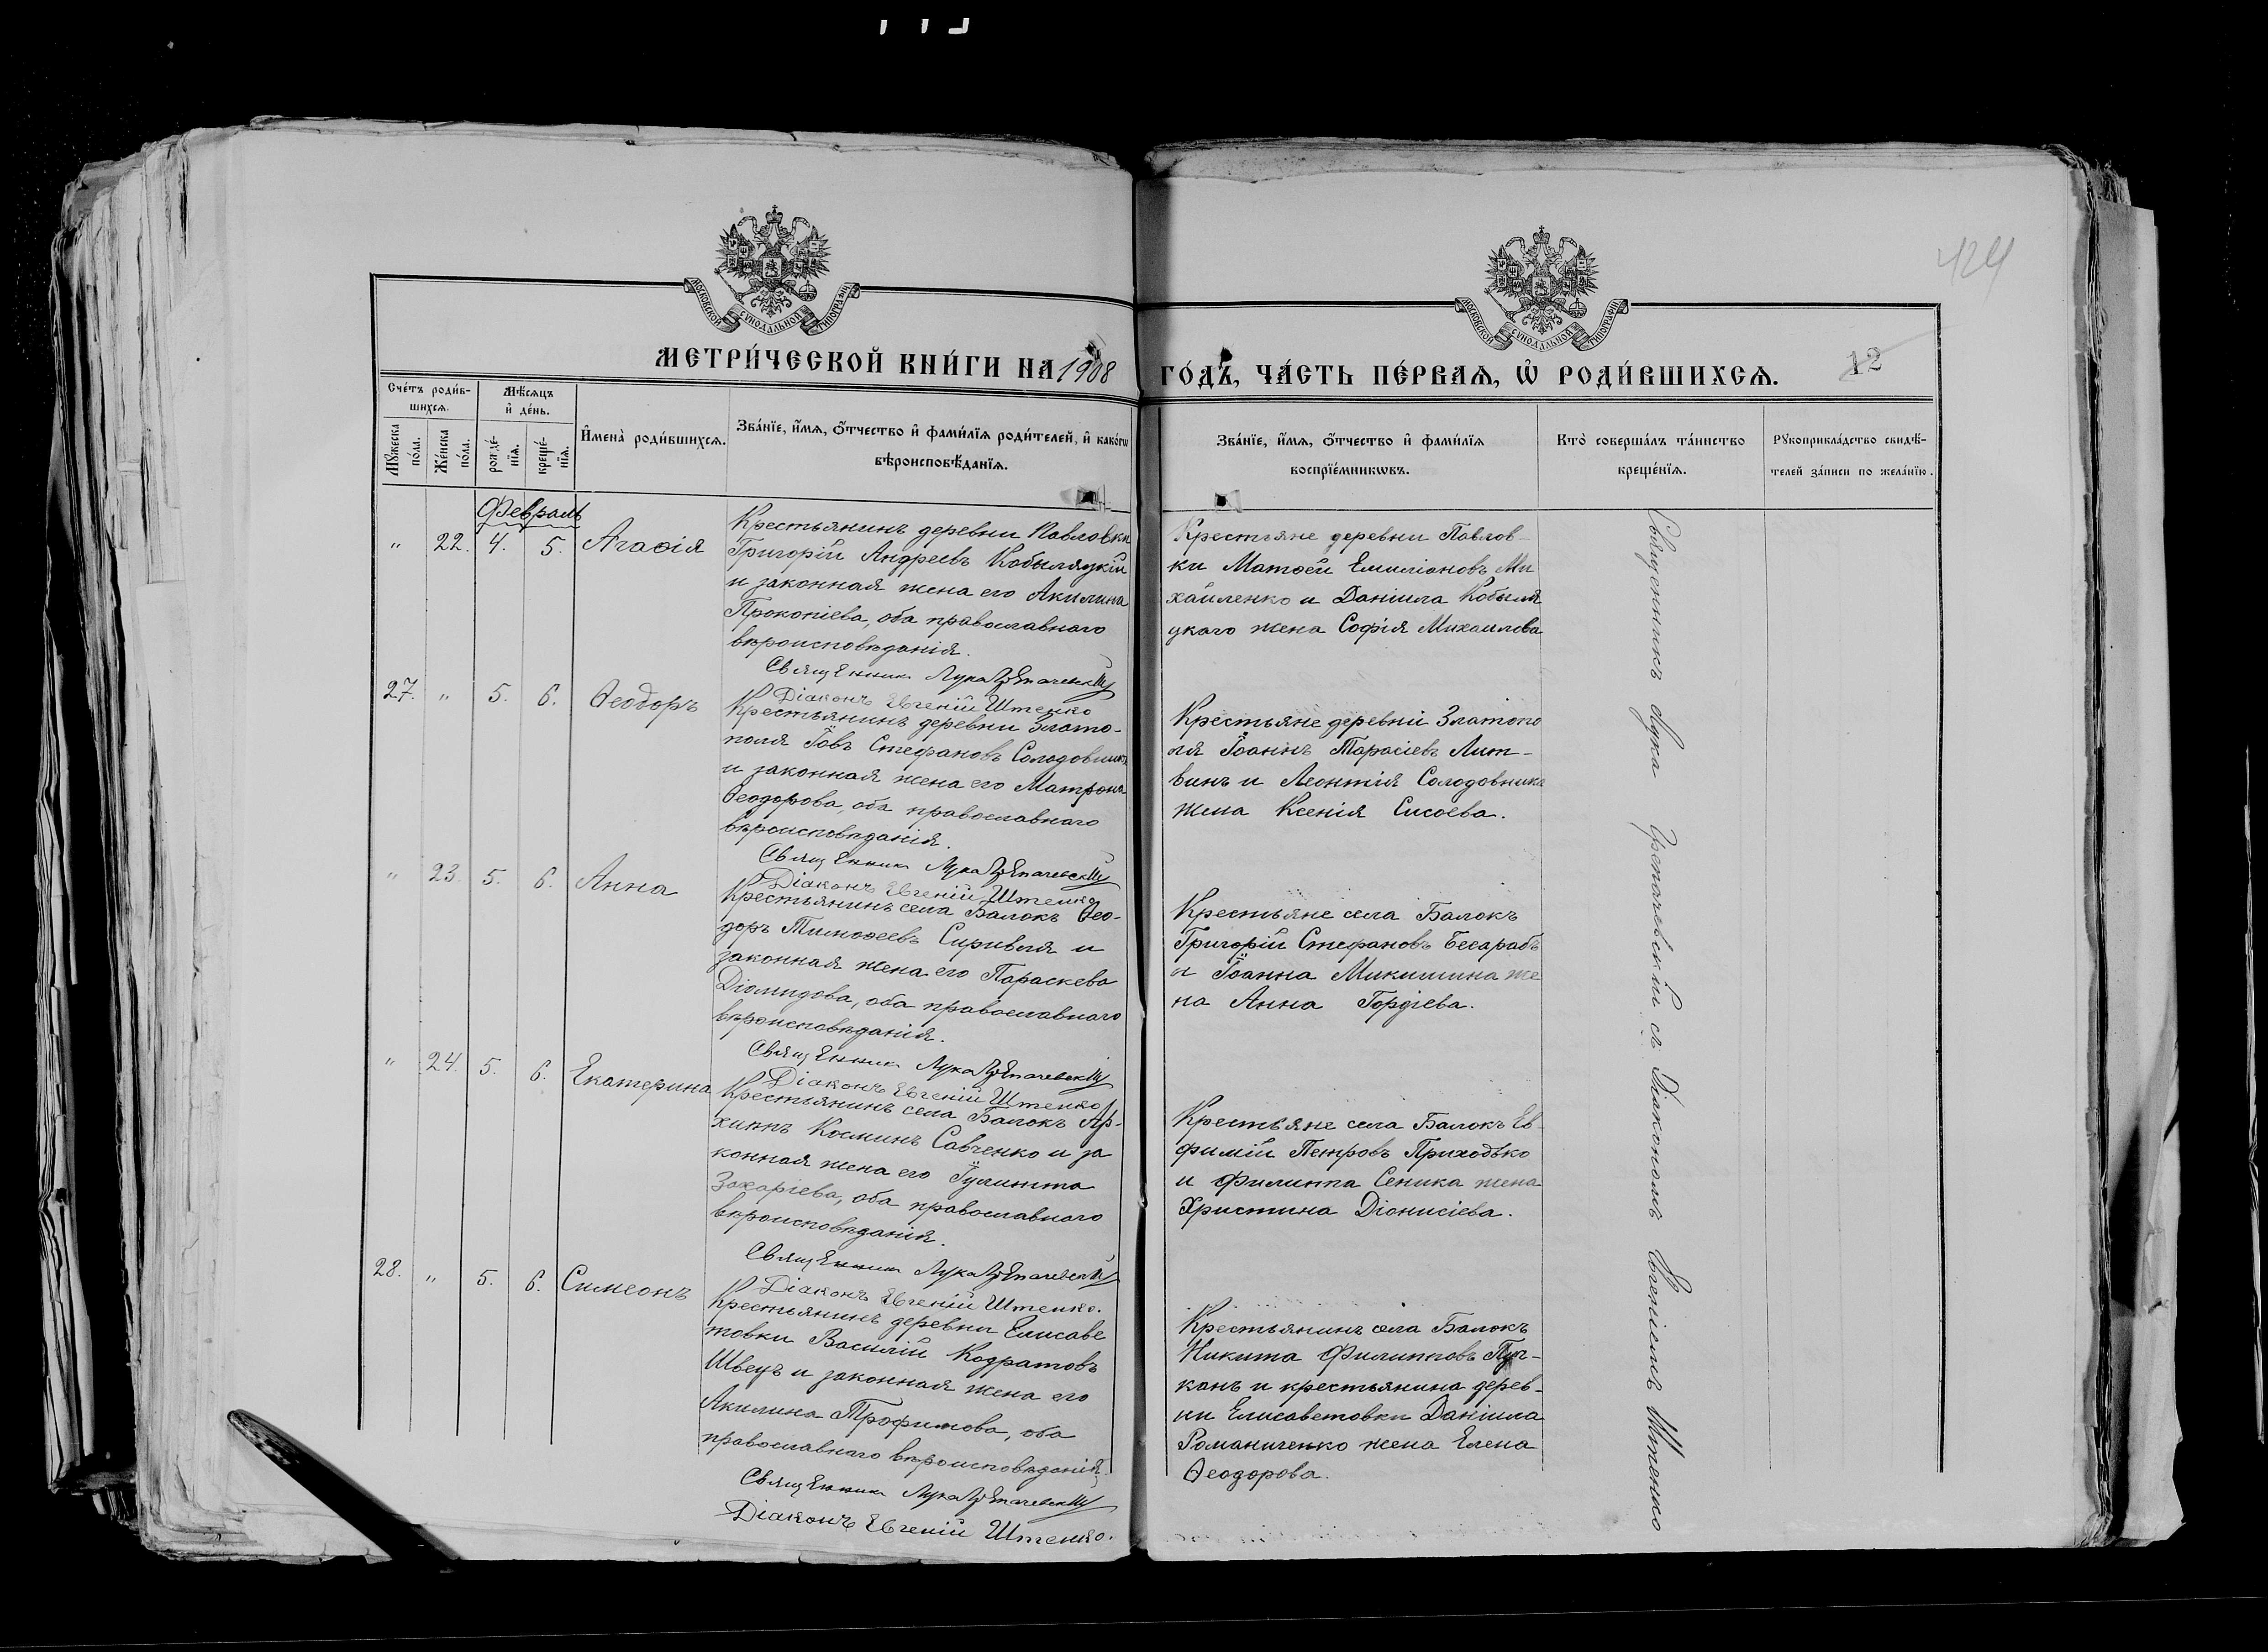 424
МОСКОВСКОЙ СѴНОДАЛЬНОЙ ТИПОГРАФІИ
МОСКОВСКОЙ СѴНОДАЛЬНОЙ ТИПОГРАФІИ
МЕТРИ́ЧЕСКОЙ КНИ́ГИ НА 1908 ГО́ДЪ, ЧА́СТЬ ПЕ́РВАѦ, Ѡ҆ РОДИ́ВШИХСѦ.
12
Сче́тъ роди́в-
шихсѧ.
Мꙋ́жеска по́ла.
Же́нска по́ла.
Мѣ́сѧцъ
и҆ де́нь.
рожде́-
нїѧ.
креще́-
нїѧ.
И҆мена̀ роди́вшихсѧ.
Зва́нїе, и҆́мѧ, ѻ҆́тчество и҆ фами́лїѧ роди́телей, и҆ како́гѡ
вѣроисповѣ́данїѧ.
Зва́нїе, и҆́мѧ, ѻ҆́тчество и҆ фами́лїѧ
воспрїе́мникѡвъ.
Кто̀ соверша́лъ та́инство
креще́нїѧ.
Рꙋкоприкла́дство свидѣ́-
телей за́писи по жела́нїю.
Февраль
" 22. 4. 5. Агаѳія
Крестьянинъ деревни Павловки
Григорій Андреевъ Кобыляцкій
и законная жена его Акилина
Прокопіева, оба православнаго
вѣроисповѣданія.
Священникъ Лука
Діаконъ Евгеній Штенко
Крестьяне деревни Павлов-
ки Матѳей Емиліановъ Ми
хайленко и Даніила Кобыля
цкаго жена Софія Михаилова
27. " 5. 6. Ѳеодоръ
Крестьянинъ деревни Злато-
поля Іовъ Стефановъ Солодовникъ
и законная жена его Матрона
Ѳеодорова, оба православнаго
вѣроисповѣданія.
Священникъ Лука
Діаконъ Евгеній Штенко
Крестьяне деревни Златопо
ля Іоаннъ Тарасіевъ Лит-
винъ и Леонтія Солодовника
жена Ксенія Сисоева.
" 23. 5. 6. Анна
Крестьянинъ села Балокъ Ѳео-
доръ Тимоѳеевъ Сиривля и
законная жена его Параскева
Діомидова, оба православнаго
вѣроисповѣданія.
Священникъ Лука
Діаконъ Евгеній Штенко
Крестьяне села Балокъ
Григорій Стефановъ Бесарабъ
и Іоанна Микитина же
на Анна Гордіева.
" 24. 5. 6. Екатерина
Крестьянинъ села Балокъ Ар-
хиппъ Косминъ Савченко и за
конная жена его Іулитта
Захаріева, оба православнаго
вѣроисповѣданія.
Священникъ Лука
Діаконъ Евгеній Штенко.
Крестьяне села Балокъ Ев-
фимій Петровъ Приходько
и Филиппа Сеника жена
Христина Діонисіева.
28. " 5. 6. Симеонъ
Крестьянинъ деревни Елисаве
товки Василій Кодратовъ
Швецъ и законная жена его
Акилина Трофимова, оба
православнаго вѣроисповѣданія.
Священникъ Лука
Діаконъ Евгеній Штенко.
Крестьянинъ села Балокъ
Никита Филипповъ
и крестьянина дерев-
ни Елисаветовки Даніила
Романиченко жена Елена
Ѳеодорова.
Священникъ Лука съ Діакономъ Евгеніемъ Штенко